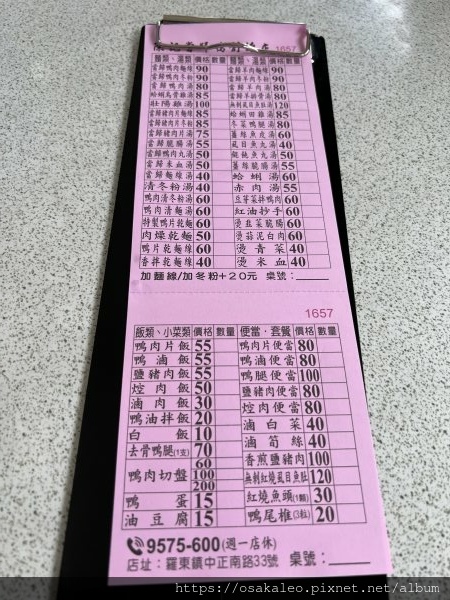 1657
麵類、湯類 價格 數量 麵類、湯類 價格 數量
當歸鴨肉麵線 90 當歸羊肉麵線 90
當歸鴨肉冬粉 90 當歸羊肉冬粉 90
當歸鴨肉湯 80 當歸羊肉湯 90
蛤蜊烏骨雞湯 85 當歸羊 骨湯 80
壯陽雞湯 100 無刺虱目魚肚湯 120
當歸豬肉片麵線 85 蛤蜊田雞湯 85
當歸豬肉片冬粉 85 冬菜鴨腿湯 80
當歸豬肉片湯 75 薑絲魚皮湯 60
當歸脆腸湯 55 虱目魚丸湯 40
當歸鴨肉丸湯 50 餛飩魚丸湯 50
當歸米血湯 50 薑絲脆腸湯 55
當歸麵線湯 40 蛤蜊湯 60
清冬粉湯 40 赤肉湯 55
鴨肉清冬粉 60 豆芽菜拌鴨肉 60
鴨肉清麵線 60 紅油抄手 60
特製鴨片乾麵 60 燙韭菜脆腸 60
肉燥乾麵 50 燙蒜泥白肉 60
鴨片乾麵線 60 燙青菜 40
香拌乾麵線 40 燙米血 40
加麵線/加冬粉+20元 桌號:
1657
飯類、小菜類 價格 數量 便當、套餐 價格 數量
鴨肉片飯 55 鴨肉片便當 80
鴨滷飯 55 鴨滷便當 80
鹽豬肉飯 55 鴨腿便當 100
焢肉飯 50 鹽豬肉便當 80
滷肉飯 30 焢肉便當 80
鴨油拌飯 20 滷白菜 40
白飯 10 滷筍絲 40
去骨鴨腿(1支) 70 香煎鹽豬肉 100
鴨肉切盤 60 100 200 無刺紅燒虱目魚肚 120
鴨蛋 15 紅燒魚頭(1顆) 30
油豆腐 15 鴨尾椎(3粒) 20
9575-600(週一店休)
店址:羅東鎮中正南路33號 桌號:
https://osakaleo.pixnet.net/album